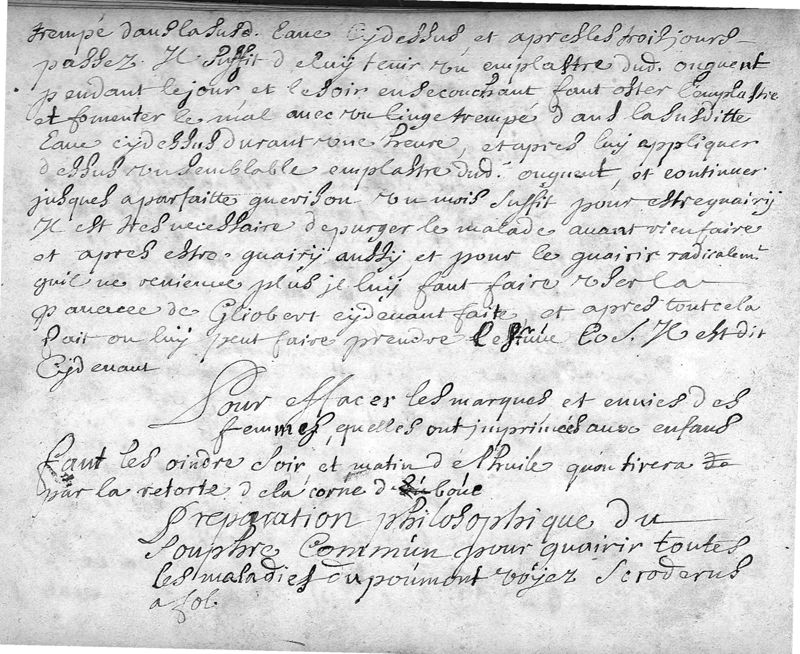 trempé dans la susd. Eaue Cydessus et apres les trois jours
passez. Il suffit de luy tenir un emplastre dud. onguent
pendant le jour et le soir en se couchant faut oster l'emplastre
et fomenter le mal avec un linge trempé dans la susditte
Eaue cydessus durant une heure, et apres luy appliquer
dessus un semblable emplastre dud. onguent, et continuer
jusques a parfaitte guerison un mois suffit pour estre guairy
Il est tres necessaire de purger le malade avant rien faire
et apres estre guairy aussy et pour le guairir radicalemt
quil ne revienne plus je luy faut faire user la
panacee de Gliobert cydevant faite, et apres tout cela
fait on luy peut faire prendre Co. Il est dit
Cydevant
Pour effacer les marques et envies des
femmes, quelles ont imprimées aux enfans
faut les oindre soir et matin de l'huile qu'on tirera
par la retorte de la corne d bouc
Preparation philosophique du
Souphre Commun pour guairir toutes
les maladies du poumont voyez Scroderus
a fol.